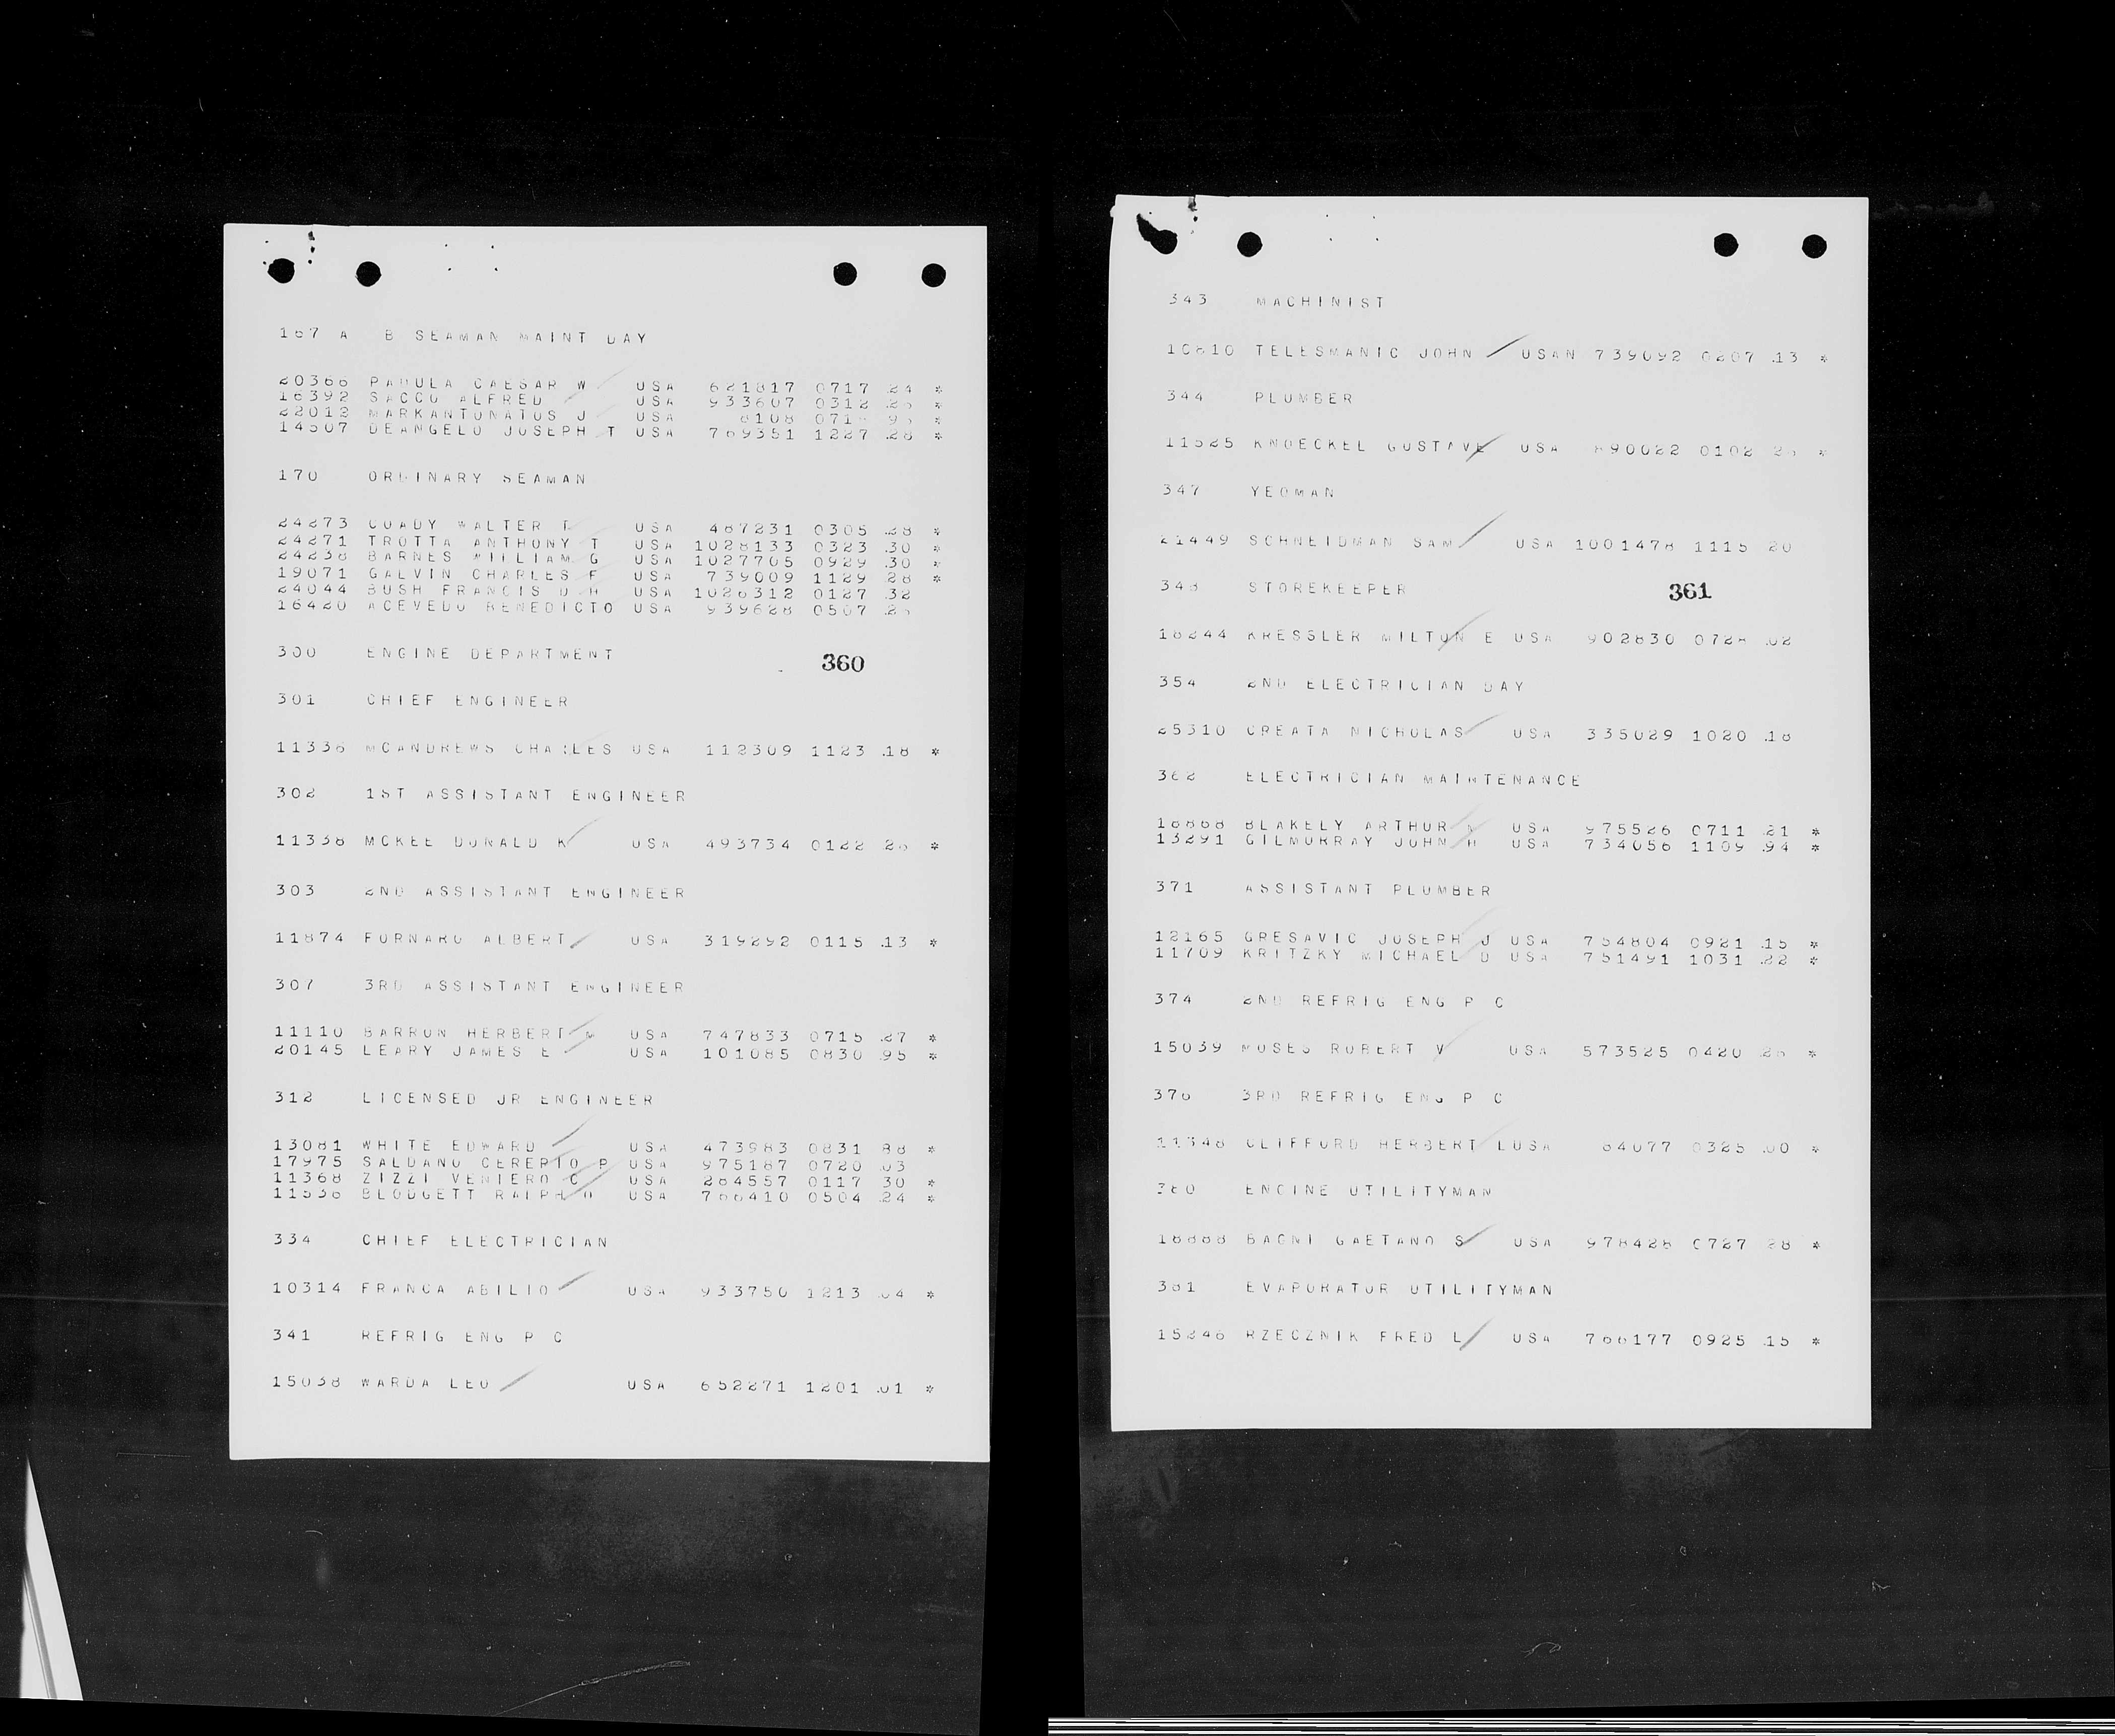 167 A B SEAMAN MAINT DAY
20366 PADULA CAESAR W USA 621817 0717 .24 *
16392 SACCO ALFRED USA 933607 0312 *
22012 MARKANTONATOS J USA *
14507 DEANGELO JOSEPH T USA 769351 1227 .28 *
170 ORDINARY SEAMAN
24273 COADY WALTER T USA 487231 0305 .28 *
24271 TROTTA ANTHONY T USA 1028133 0323 .30 *
24238 BARNES WILLIAM G USA 1027705 0929 .30 *
19071 GALVIN CHARLES F USA 739009 1129 .28 *
24044 BUSH FRANCIS D H USA 1026312 0127 .32
16420 ACEVEDO BENEDICTO USA 939628 0507
300 ENGINE DEPARTMENT
360
301 CHIEF ENGINEER
11336 MCANDREWS CHARLES USA 112309 1123 .18 *
302 1ST ASSISTANT ENGINEER
11338 MCKEE DONALD K USA 493734 0122 *
303 2ND ASSISTANT ENGINEER
11874 FORNARO ALBERT USA 319292 0115 .13 *
307 3RD ASSISTANT ENGINEER
11110 BARRON HERBERT M USA 747833 0715 .27 *
20145 LEARY JAMES E USA 101085 0830 .95 *
312 LICENSED JR ENGINEER
13081 WHITE EDWARD USA 473983 0831 88 *
17975 SALDANO CERERIO P USA 975187 0720 .03
11368 ZIZZI VENIERO C USA 284557 0117 30 *
11536 BLODGETT RALPH O USA 766410 0504 .24 *
334 CHIEF ELECTRICIAN
10314 FRANCA ABILIO USA 933750 1213 .04 *
341 REFRIG ENG P C
15038 WARDA LEO USA 652271 1201 .01 *
343 MACHINIST
10810 TELESMANIC JOHN USAN 739092 0207 .13 *
344 PLUMBER
11525 KNOECKEL GUSTAVE USA 890022 0102 *
347 YEOMAN
21449 SCHNEIDMAN SAM USA 1001478 1115 20
348 STOREKEEPER
361
18244 KRESSLER MILTON E USA 902830 0728 .02
354 2ND ELECTRICIAN DAY
25310 CREATA NICHOLAS USA 335029 1020 .18
362 ELECTRICIAN MAINTENANCE
18868 BLAKELY ARTHUR USA 975526 0711 .21 *
13291 GILMURRAY JOHN H USA 734056 1109 .94 *
371 ASSISTANT PLUMBER
12165 GRESAVIC JOSEPH J USA 754804 0921 .15 *
11709 KRITZKY MICHAEL D USA 751491 1031 .22 *
374 2ND REFRIG ENG P C
15039 MOSES ROBERT V USA 573525 0420 *
376 3RD REFRIG ENG P C
11348 CLIFFORD HERBERT LUSA 64077 0325 .00 *
380 ENGINE UTILITYMAN
18888 BAGNI GAETANO S USA 978428 0727 28 *
381 EVAPORATOR UTILITYMAN
15246 RZECZNIK FRED L USA 766177 0925 .15 *